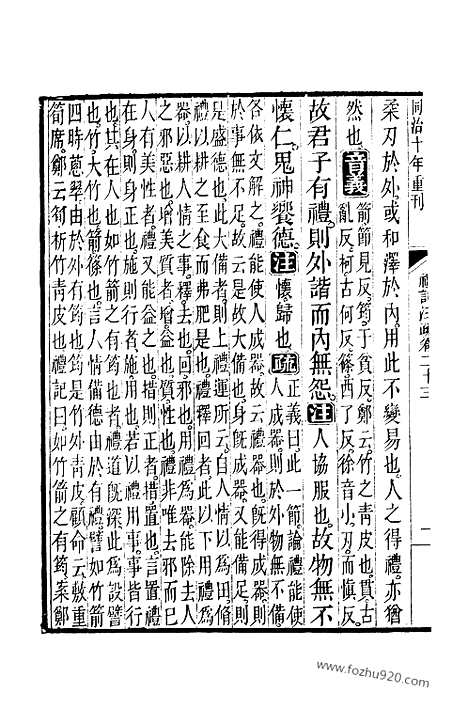 同治十年重刊
禮記注疏卷二十三
二
柔刃於外或和擇於內用此不變易也人之得禮亦猶
然也音義箭節見反筠于貧反鄭云竹之青皮也貫古
亂反柯古何反篠西了反徐音小刃而慎反
故君子有禮則外諧而內無怨注人協服也故物無不
懷仁鬼神饗德注懷歸也疏正義曰此一節論禮能使
人成器則於外物無不備
各依文解之禮能使人成器故云禮器也旣得成器則
於事無不足故云是故大備也身旣成器又能備足則
是盛德也此大備者則上禮運所云自人情以爲田脩
禮以耕之至食而弗肥是也禮釋回者此以下用禮爲
器以耕人情之事釋去也回邪也用禮爲器能除去人
之邪惡也增美質者增益也質性也禮非唯去邪而已
人有美性者禮又能益之也措則正者措置也言置禮
在身則身正也施則行者施用也若以禮用事事皆行
也其在人也如竹箭之有筠也者禮道旣深此爲設譬
也竹大竹也箭篠也言人情備德由於有禮譬如竹箭
四時葱翠由於外有筠也筠是竹外青皮顧命云敷重
筍席鄭云筍析竹青皮也禮記曰如竹箭之有筠案鄭
www.fozhu920.com